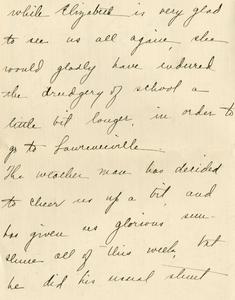 while Elizabeth is very glad
to see us all again, she
would gladly have endured
the drudgery of school a
little bit longer, in order to
go to Lawrenceville.
The weather man has decided
to cheer us up a bit, and
has given us glorious sun-
shine all of this week, but
he did his usual stunt